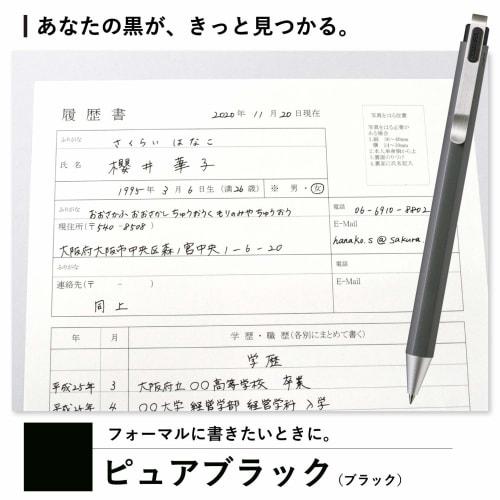 あなたの黒が、きっと見つかる。
履歴書
2020年 11月20日現在
写真をはる位置
写真をはる必要が
ある場合
1.縦 36～40mm
横 24～30mm
2.本人単身胸から上
3.裏面のりづけ
4.裏面に氏名記入
ふりがな さくらい はなこ
氏名 櫻井 華子
1995年 3月 6日生（満26歳） ※ 男・女
ふりがな おおさかふ おおさかし ちゅうおうく もりのみや ちゅうおう
電話 06-6910-8802
現住所（〒540-8508）
E-Mail
大阪府大阪市中央区森ノ宮中央1-6-20
hanako.s@sakura.
ふりがな
電話
連絡先（〒 － ）
E-Mail
同上
年 月 学歴・職歴（各別にまとめて書く）
学歴
平成25年 3 大阪府立〇〇高等学校 卒業
4 〇〇大学 経営学部 経営学科 入学
フォーマルに書きたいときに。
ピュアブラック（ブラック）